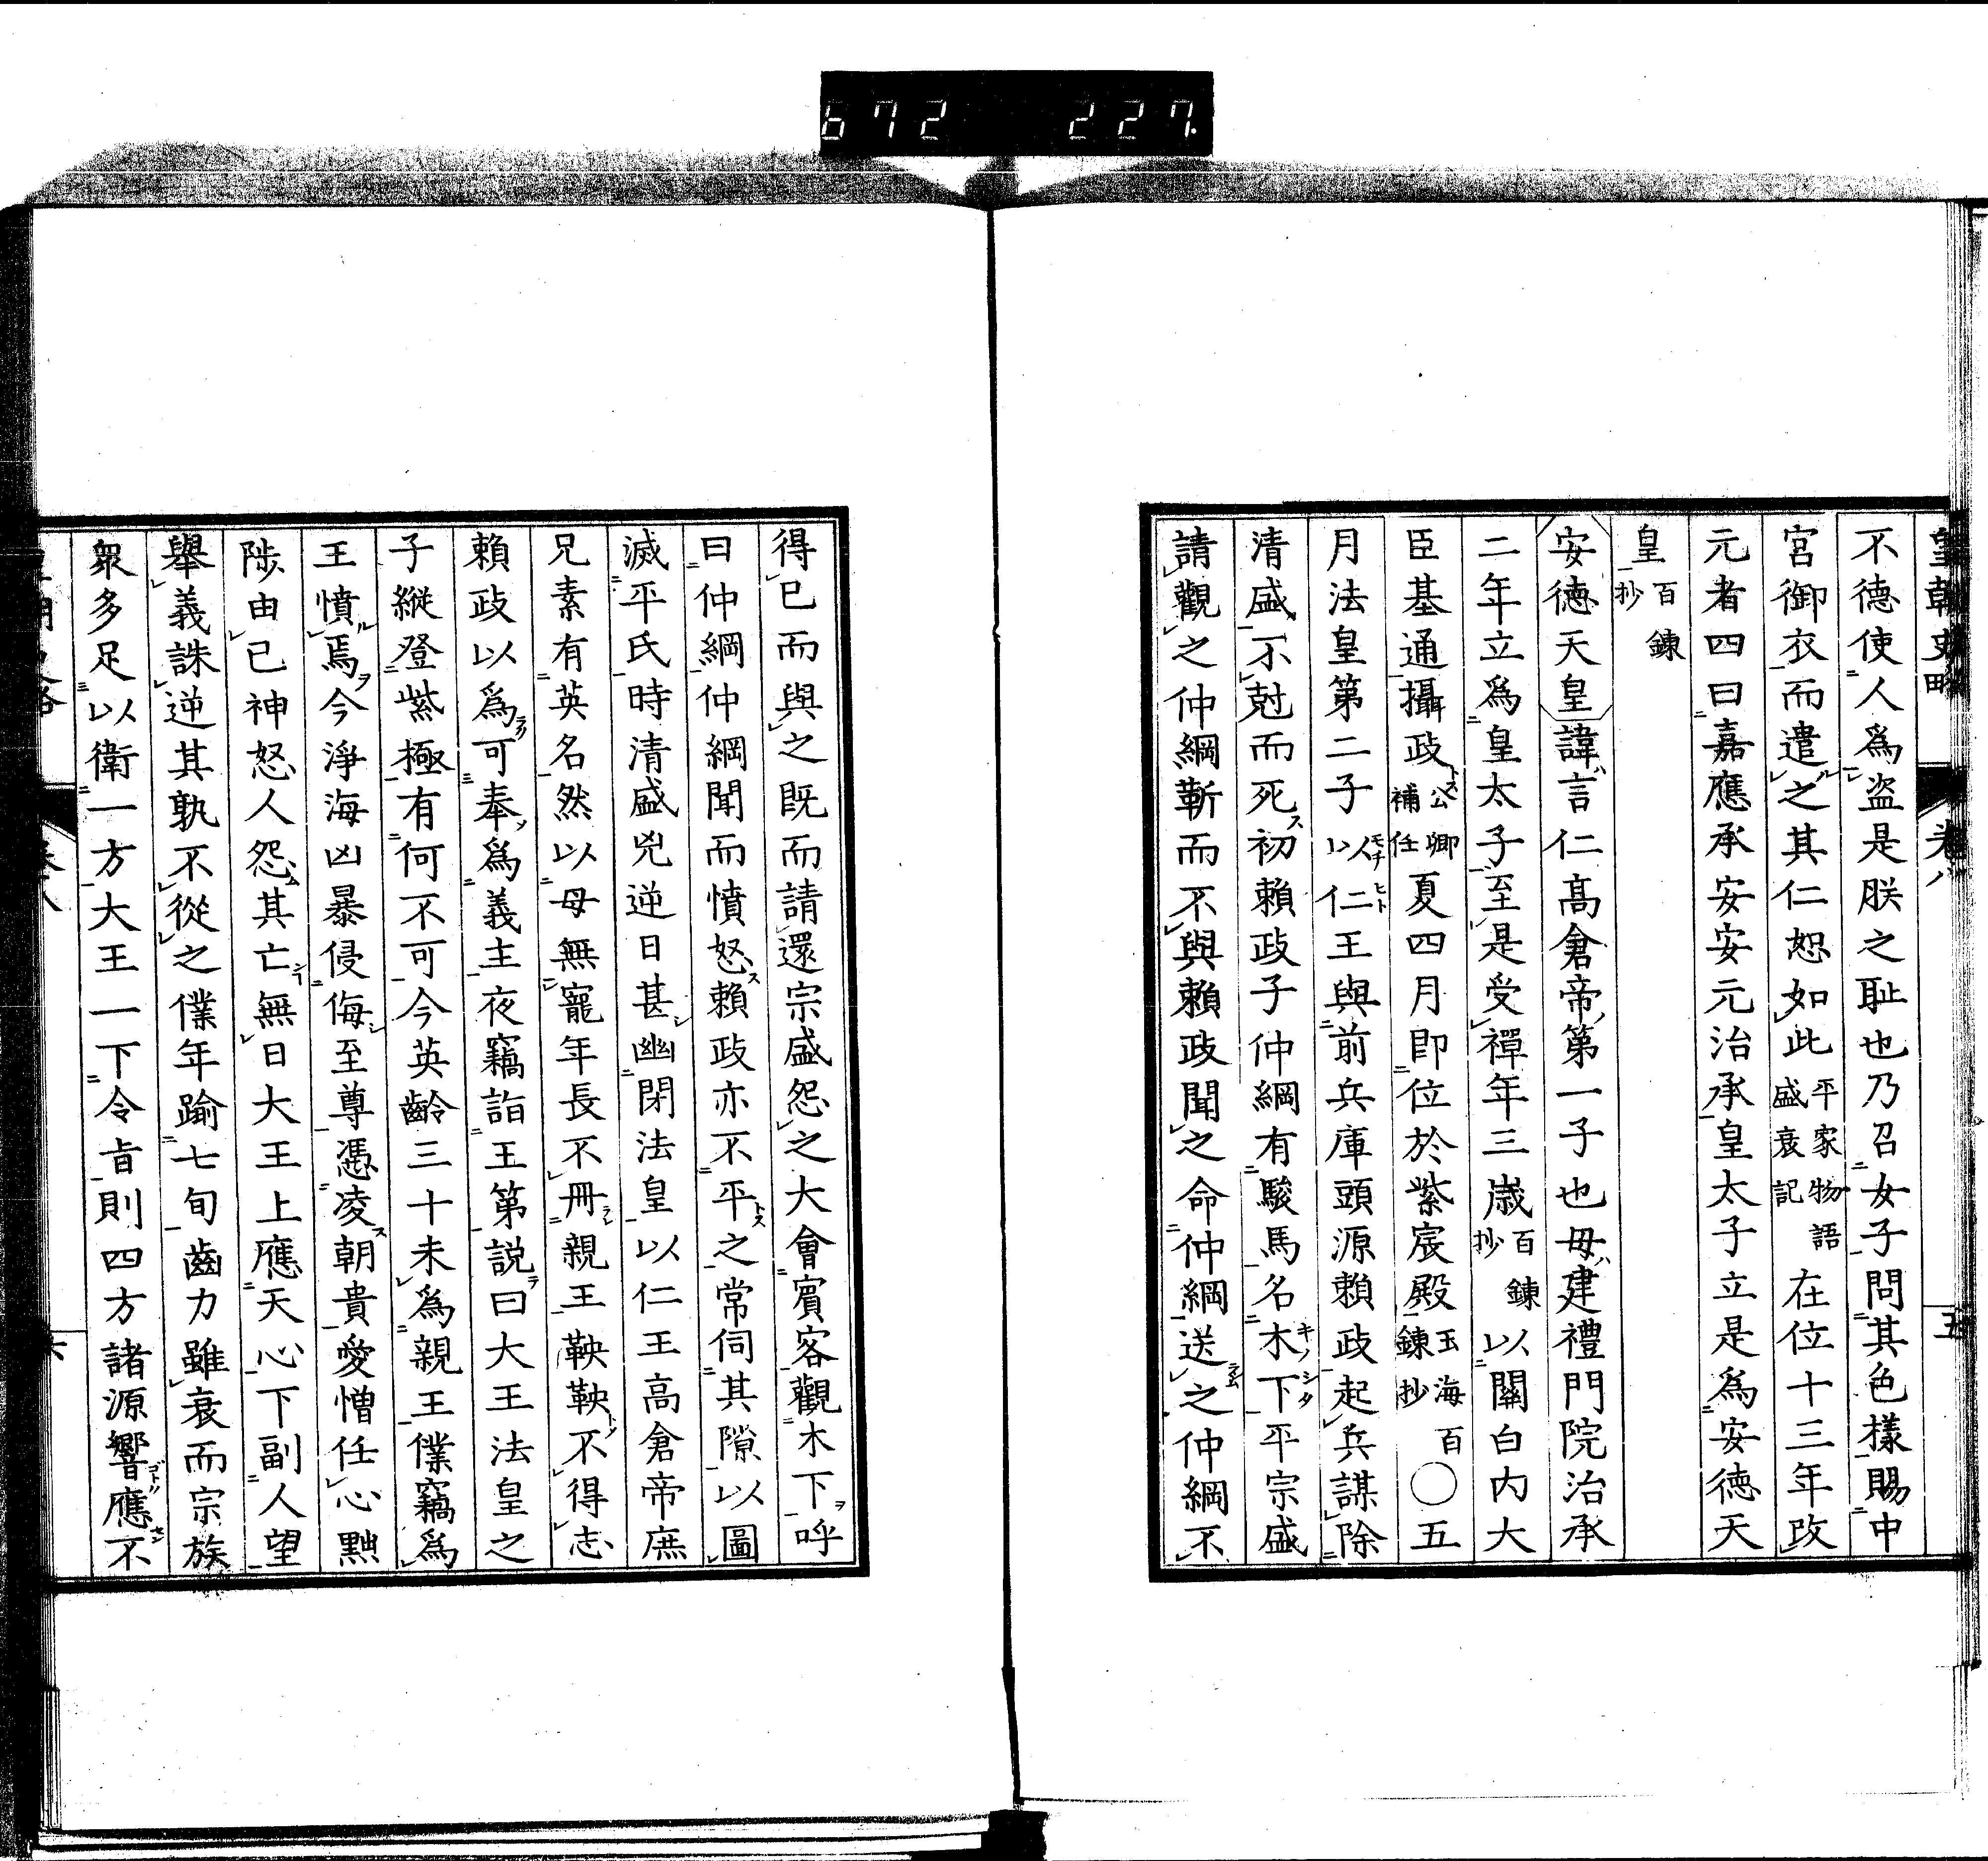 672 227.
皇朝史略 卷八 五
不德使人爲盜是朕之耻也乃召女子問其色樣賜中
宮御衣而遣之其仁恕如此平家物語盛衰記在位十三年改
元者四曰嘉應承安安元治承皇太子立是爲安德天
皇百鍊抄
安德天皇諱言仁高倉帝第一子也母建禮門院治承
二年立爲皇太子至是受禪年三歲百鍊抄以關白內大
臣基通攝政公卿補任夏四月卽位於紫宸殿玉海百鍊抄〇五
月法皇第二子以仁王與前兵庫頭源賴政起兵謀除
清盛不尅而死初賴政子仲綱有駿馬名木下平宗盛
請觀之仲綱靳而不與賴政聞之命仲綱送之仲綱不
得已而與之既而請還宗盛怨之大會賓客觀木下呼
曰仲綱仲綱聞而憤怒賴政亦不平之常伺其隙以圖
滅平氏時清盛兇逆日甚幽閉法皇以仁王高倉帝庶
兄素有英名然以母無寵年長不冊親王鞅鞅不得志
賴政以爲可奉爲義主夜竊詣王第說曰大王法皇之
子縱登紫極有何不可今英齡三十未爲親王僕竊爲
王憤焉今淨海凶暴侵侮至尊憑凌朝貴愛憎任心黜
陟由己神怒人怨其亡無日大王上應天心下副人望
舉義誅逆其孰不從之僕年踰七旬齒力雖衰而宗族
衆多足以衛一方大王一下令旨則四方諸源響應不
卷八